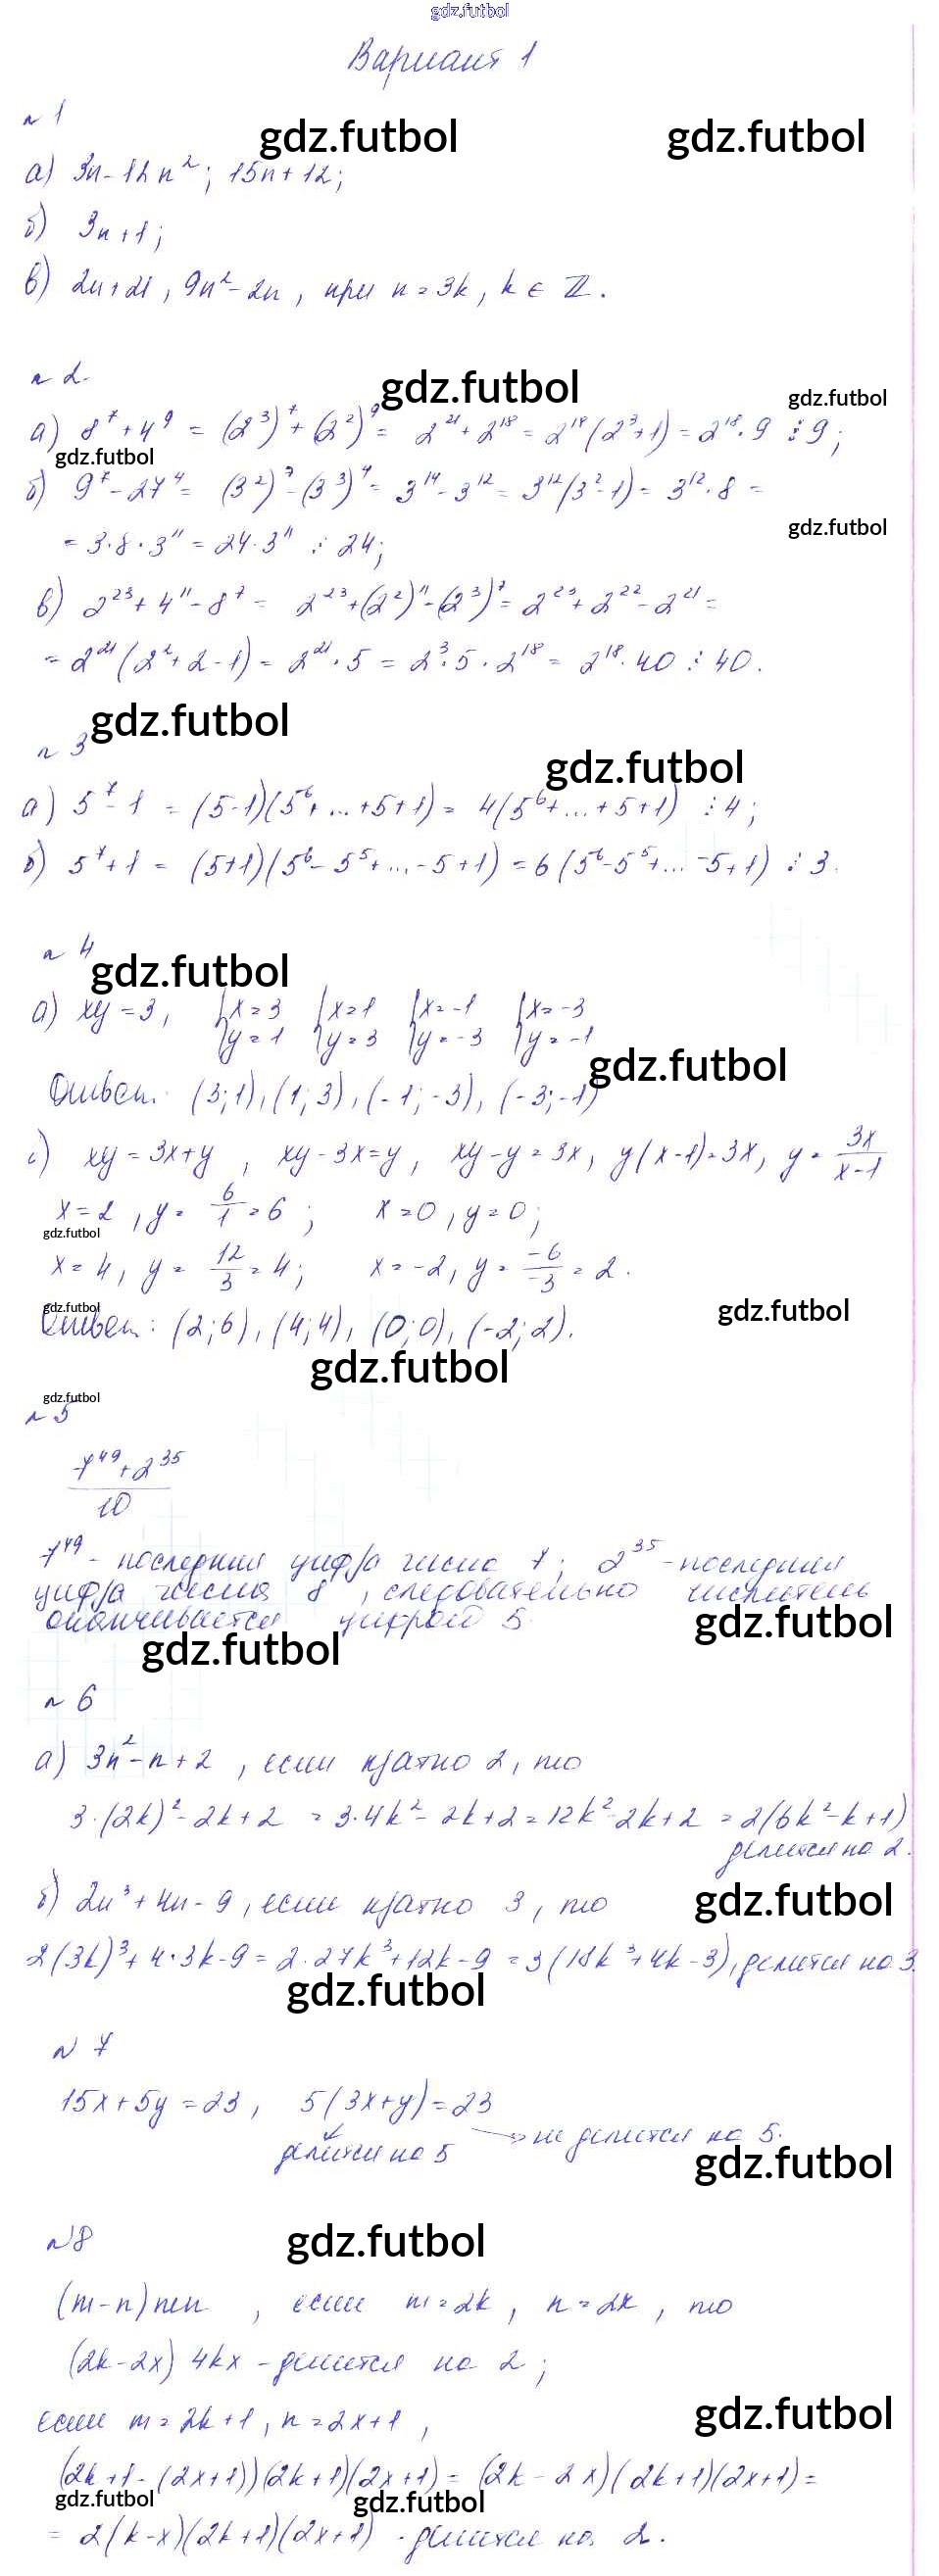 gdz.futbol
Вариант 1
n 1
gdz.futbol gdz.futbol
а) 3n - 12n²; 15n + 12;
б) 3n + 1;
в) 2n + 21, 9n² - 2n, при n = 3k, k ∈ ℤ.
n 2.
gdz.futbol
gdz.futbol
а) 8⁷ + 4⁹ = (2³)⁷ + (2²)⁹ = 2²¹ + 2¹⁸ = 2¹⁸(2³ + 1) = 2¹⁸ · 9 ⋮ 9;
gdz.futbol
б) 9⁷ - 27⁴ = (3²)⁷ - (3³)⁴ = 3¹⁴ - 3¹² = 3¹²(3² - 1) = 3¹² · 8 =
gdz.futbol
= 3 · 8 · 3¹¹ = 24 · 3¹¹ ⋮ 24;
в) 2²³ + 4¹¹ - 8⁷ = 2²³ + (2²)¹¹ - (2³)⁷ = 2²³ + 2²² - 2²¹ =
= 2²¹(2² + 2 - 1) = 2²¹ · 5 = 2³ · 5 · 2¹⁸ = 2¹⁸ · 40 ⋮ 40.
gdz.futbol
n 3
gdz.futbol
а) 5⁷ - 1 = (5 - 1)(5⁶ + ... + 5 + 1) = 4(5⁶ + ... + 5 + 1) ⋮ 4;
б) 5⁷ + 1 = (5 + 1)(5⁶ - 5⁵ + ... - 5 + 1) = 6(5⁶ - 5⁵ + ... - 5 + 1) ⋮ 3.
n 4
gdz.futbol
а) xy = 3, { x = 3 { x = 1 { x = -1 { x = -3
y = 1 y = 3 y = -3 y = -1
gdz.futbol
Ответ: (3; 1), (1; 3), (-1; -3), (-3; -1)
с) xy = 3x + y, xy - 3x = y, xy - y = 3x, y(x - 1) = 3x, y = 3x/(x - 1)
x = 2, y = 6/1 = 6; x = 0, y = 0;
gdz.futbol
x = 4, y = 12/3 = 4; x = -2, y = -6/-3 = 2.
gdz.futbol gdz.futbol
Ответ: (2; 6), (4; 4), (0; 0), (-2; 2).
gdz.futbol
gdz.futbol
n 5
7⁴⁹ + 2³⁵
10
7⁴⁹ - последняя цифра числа 7; 2³⁵ - последняя
цифра числа 8, следовательно числитель
оканчивается цифрой 5.
gdz.futbol
gdz.futbol
n 6
а) 3n² - n + 2, если кратно 2, то
3 · (2k)² - 2k + 2 = 3 · 4k² - 2k + 2 = 12k² - 2k + 2 = 2(6k² - k + 1)
делится на 2.
б) 2n³ + 4n - 9, если кратно 3, то
gdz.futbol
2(3k)³ + 4 · 3k - 9 = 2 · 27k³ + 12k - 9 = 3(18k³ + 4k - 3), делится на 3.
gdz.futbol
n 7
15x + 5y = 23, 5(3x + y) = 23
→ не делится на 5.
делится на 5
gdz.futbol
n 8
gdz.futbol
(m - n)mn, если m = 2k, n = 2x, то
(2k - 2x) 4kx - делится на 2;
если m = 2k + 1, n = 2x + 1,
gdz.futbol
(2k + 1 - (2x + 1))(2k + 1)(2x + 1) = (2k - 2x)(2k + 1)(2x + 1) =
gdz.futbol gdz.futbol
= 2(k - x)(2k + 1)(2x + 1) - делится на 2.